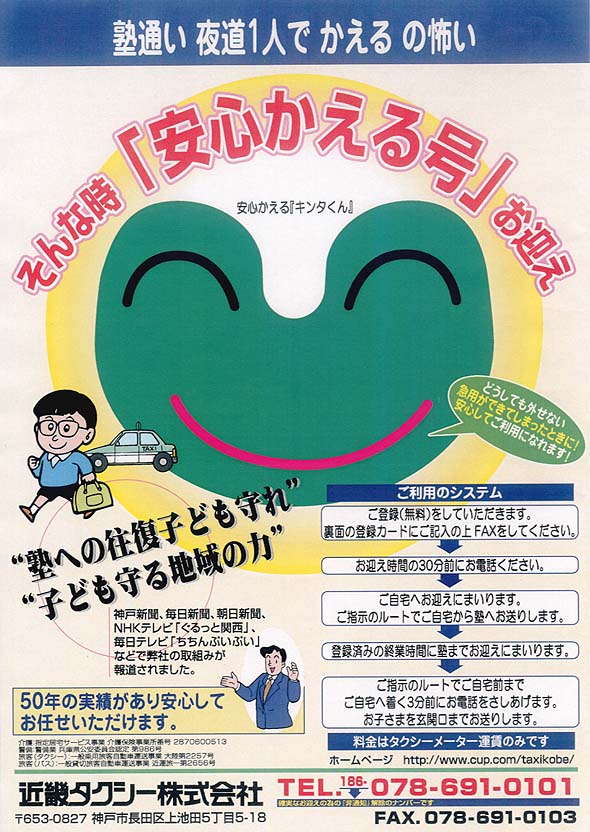 塾通い 夜道1人で かえる の怖い
そんな時「安心かえる号」お迎え
安心かえる『キンタくん』
どうしても外せない
急用ができてしまったときに!
安心してご利用になれます!
TAXI
“塾への往復子ども守れ”
“子ども守る地域の力”
神戸新聞、毎日新聞、朝日新聞、
NHKテレビ「ぐるっと関西」、
毎日テレビ「ちちんぷいぷい」
などで弊社の取組みが
報道されました。
50年の実績があり安心して
お任せいただけます。
介護:指定居宅サービス事業 介護保険事業所番号 2870600513
警備:警備業 兵庫県公安委員会認定 第986号
旅客(タクシー):一般乗用旅客自動車運送事業 大陸第2257号
旅客(バス):一般貸切旅客自動車運送事業 近運旅一第2656号
ご利用のシステム
ご登録(無料)をしていただきます。
裏面の登録カードにご記入の上FAXをしてください。
お迎え時間の30分前にお電話ください。
ご自宅へお迎えにまいります。
ご指示のルートでご自宅から塾へお送りします。
登録済みの終業時間に塾までお迎えにまいります。
ご指示のルートでご自宅前まで
ご自宅へ着く3分前にお電話をさしあげます。
お子さまを玄関口までお送りします。
料金はタクシーメーター運賃のみです
ホームページ http://www.cup.com/taxikobe/
近畿タクシー株式会社
〒653-0827 神戸市長田区上池田5丁目5-18
TEL. 186-078-691-0101
確実なお迎えの為の「非通知」解除のナンバーです
FAX. 078-691-0103